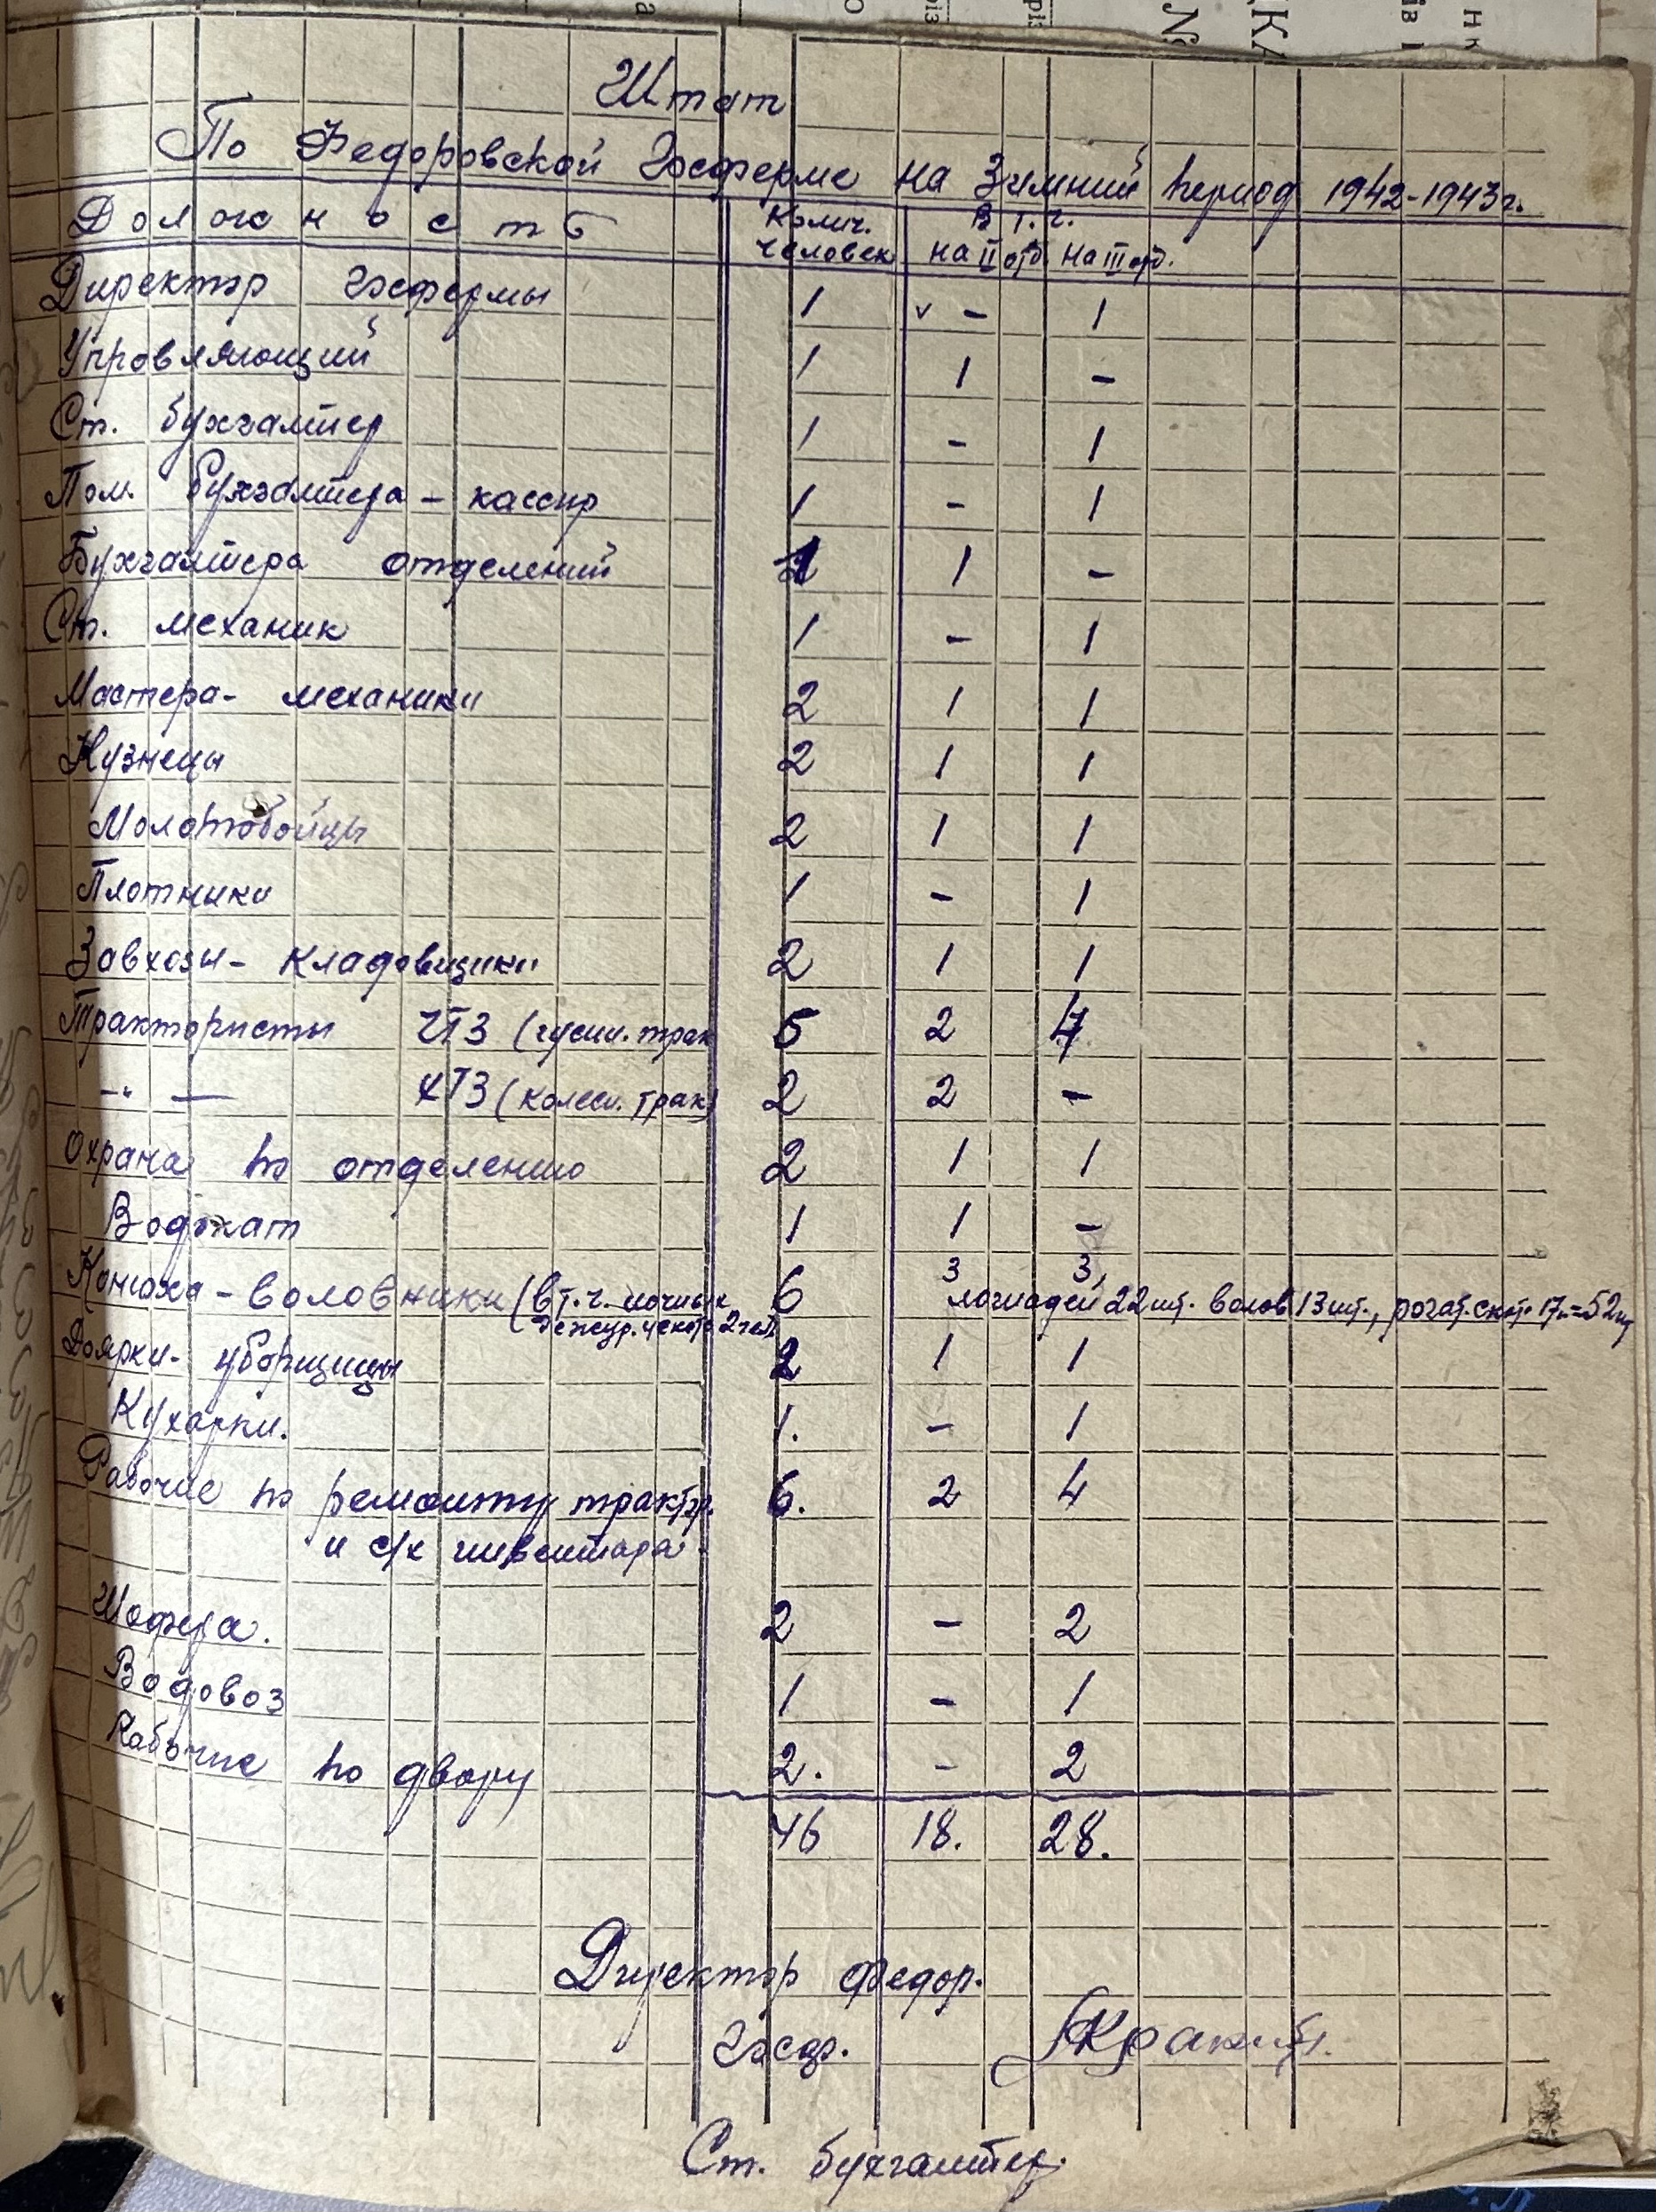 Штат
По Федоровской Госферме на Зимний период 1942-1943г.
Должность Колич. человек В т.ч. на II отд. на III отд.
Директор госфермы 1 v - 1
Упровляющий 1 1 -
Ст. бухгалтер 1 - 1
Пом. бухгалтера - кассир 1 - 1
Бухгалтера отделений 1 1 -
Ст. механик 1 - 1
Мастера- механики 2 1 1
Кузнецы 2 1 1
Молотобойцы 2 1 1
Плотники 1 - 1
Завхозы- кладовщики 2 1 1
Трактористы ЧТЗ (гусин. трак 5 2 4
-"- ХТЗ (колесн. трак) 2 2 -
Охрана по отделению 2 1 1
Водокат 1 1 -
Конюха - воловники (в т.ч. ночных 6 3 3,
дежур. у скота 2 чел. лошадей 22 шт. волов 13 шт., рогат. скот 17 = 52 шт
Доярки- уборщицы 2 1 1
Кухарки. 1. - 1
Рабочие по ремонту трактор. 6. 2 4
и с/х инвентара.
Шофера. 2 - 2
Водовоз 1 - 1
Рабочие по двору 2. - 2
46 18. 28.
Директор Федор.
Госф.
Ст. бухгалтер.